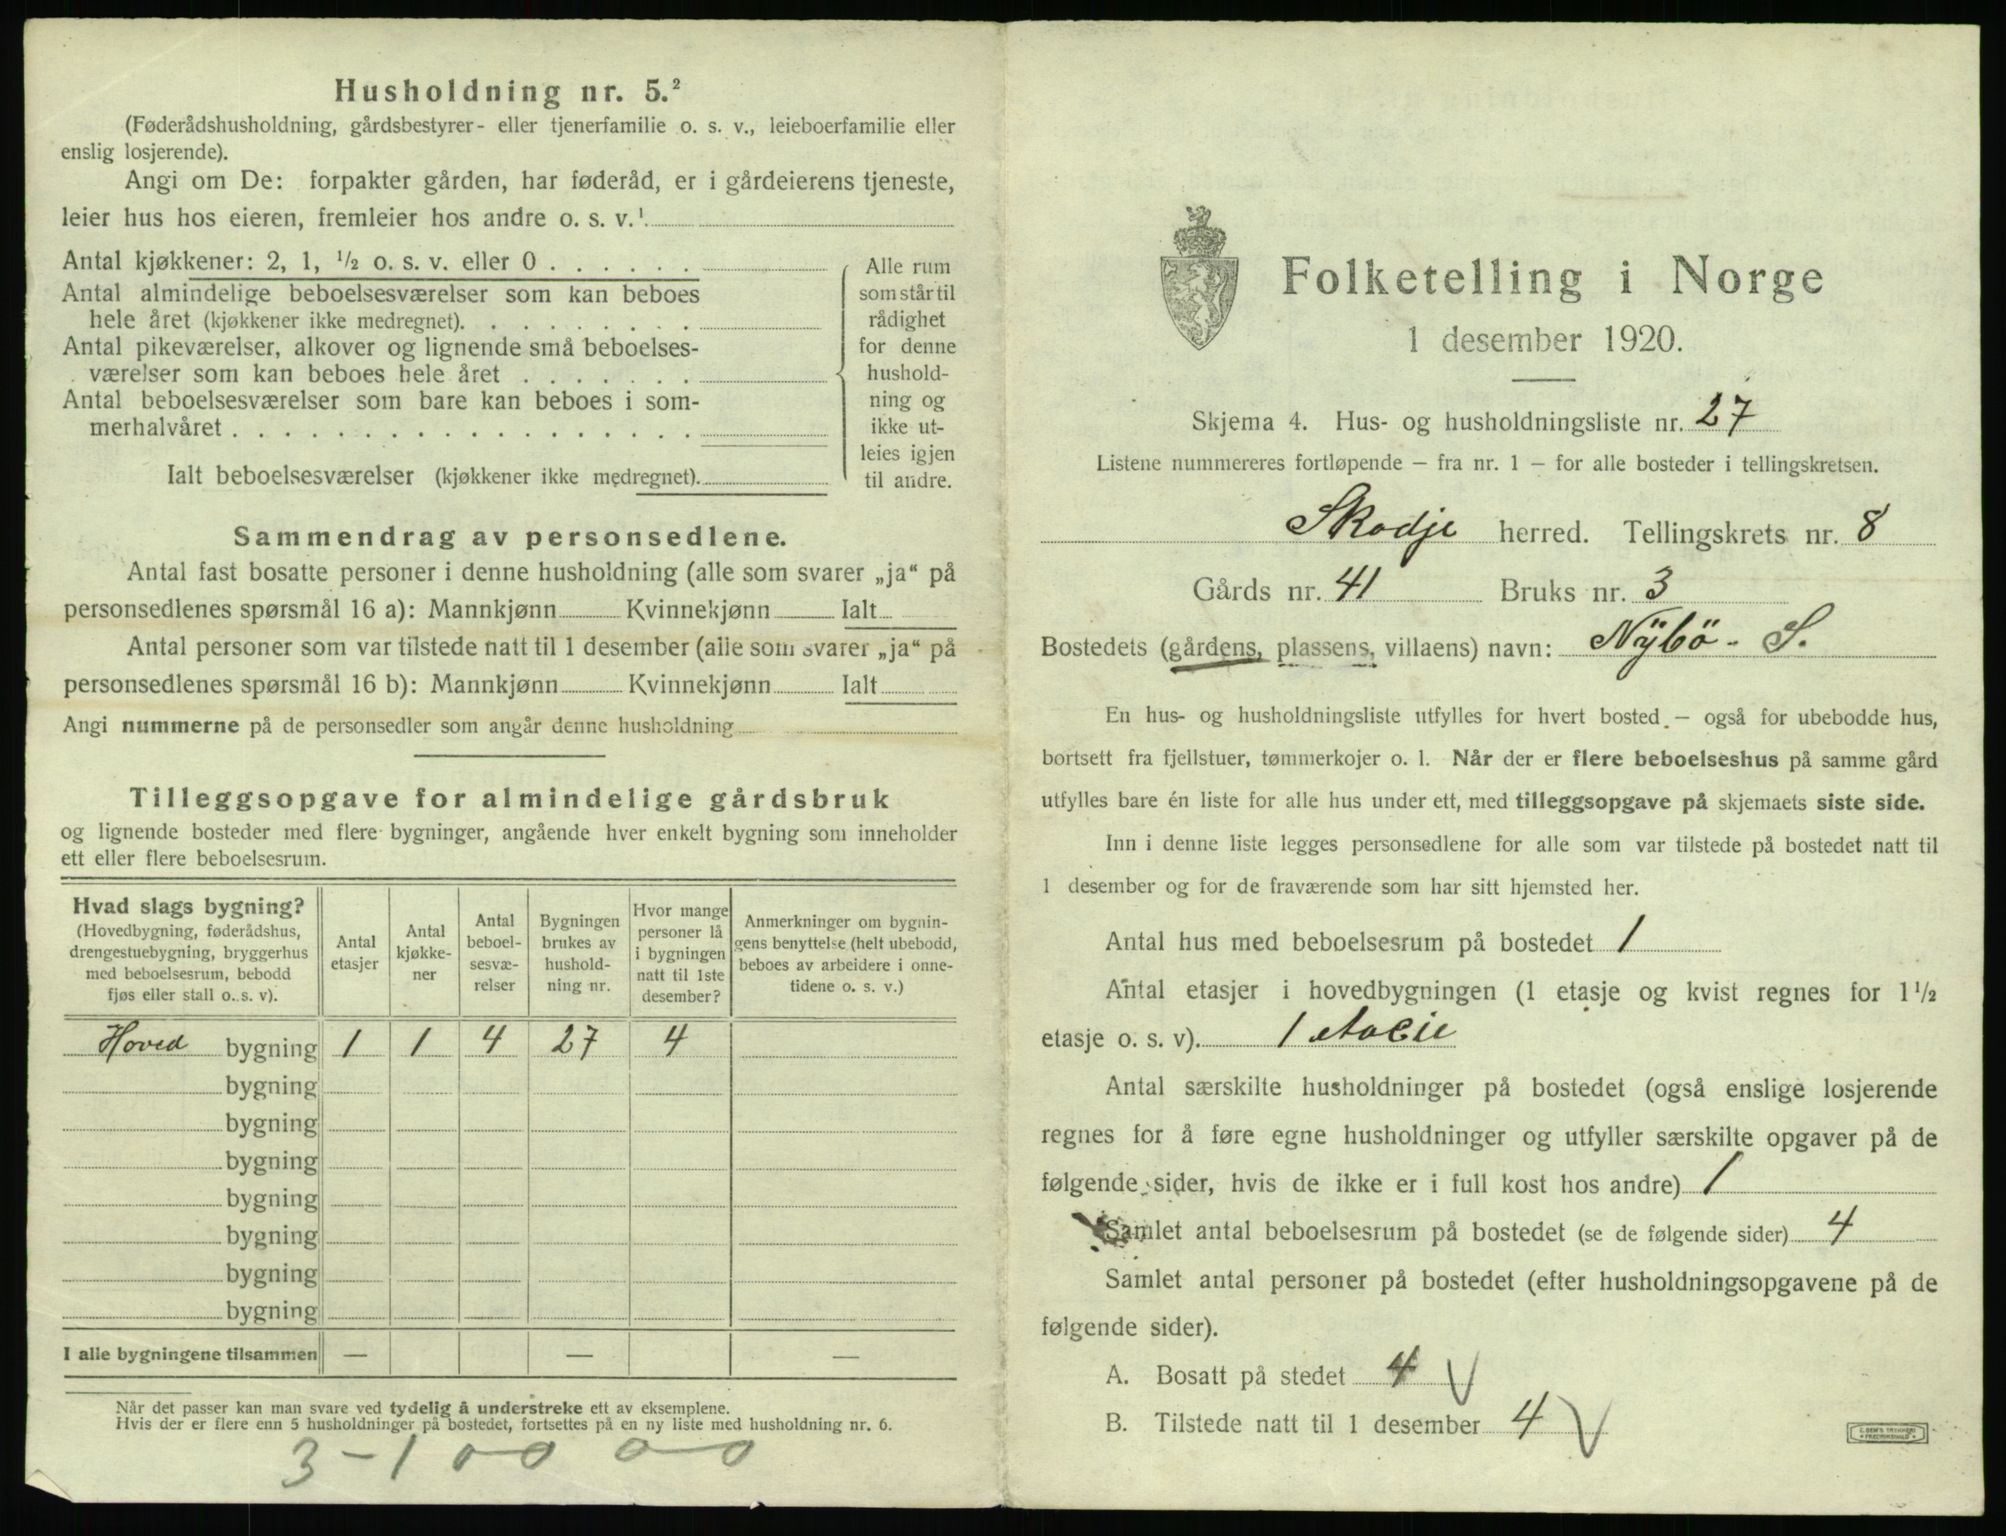 Husholdning nr. 5.²
(Føderådshusholdning, gårdsbestyrer- eller tjenerfamilie o. s. v., leieboerfamilie eller
enslig losjerende).
Angi om De: forpakter gården, har føderåd, er i gårdeierens tjeneste,
leier hus hos eieren, fremleier hos andre o. s. v.¹
Antal kjøkkener: 2, 1, ½ o. s. v. eller 0 . . . . . .
Antal almindelige beboelsesværelser som kan beboes
hele året (kjøkkener ikke medregnet). . . . . . . . .
Antal pikeværelser, alkover og lignende små beboelses-
værelser som kan beboes hele året . . . . . . .
Antal beboelsesværelser som bare kan beboes i som-
merhalvåret . . . . . . . . . . . . . . . . . .
Ialt beboelsesværelser (kjøkkener ikke medregnet).
Alle rum
som står til
rådighet
for denne
hushold-
ning og
ikke ut-
leies igjen
til andre.
Sammendrag av personsedlene.
Antal fast bosatte personer i denne husholdning (alle som svarer „ja“ på
personsedlenes spørsmål 16 a): Mannkjønn Kvinnekjønn Ialt
Antal personer som var tilstede natt til 1 desember (alle som svarer „ja“ på
personsedlenes spørsmål 16 b): Mannkjønn Kvinnekjønn Ialt
Angi nummerne på de personsedler som angår denne husholdning
Tilleggsopgave for almindelige gårdsbruk
og lignende bosteder med flere bygninger, angående hver enkelt bygning som inneholder
ett eller flere beboelsesrum.
Hvad slags bygning?
(Hovedbygning, føderådshus,
drengestuebygning, bryggerhus
med beboelsesrum, bebodd
fjøs eller stall o. s. v).
Antal
etasjer
Antal
kjøkke-
ner
Antal
beboel-
sesvæ-
relser
Bygningen
brukes av
hushold-
ning nr.
Hvor mange
personer lå
i bygningen
natt til 1ste
desember?
Anmerkninger om bygnin-
gens benyttelse (helt ubebodd,
beboes av arbeidere i onne-
tidene o. s. v.)
Hoved bygning 1 1 4 27 4
bygning
bygning
bygning
bygning
bygning
bygning
bygning
I alle bygningene tilsammen — — —
Når det passer kan man svare ved tydelig å understreke ett av eksemplene.
Hvis der er flere enn 5 husholdninger på bostedet, fortsettes på en ny liste med husholdning nr. 6.
3-10000
Folketelling i Norge
1 desember 1920.
Skjema 4. Hus- og husholdningsliste nr. 27
Listene nummereres fortløpende – fra nr. 1 – for alle bosteder i tellingskretsen.
Skodje herred. Tellingskrets nr. 8
Gårds nr. 41 Bruks nr. 3
Bostedets (gårdens, plassens, villaens) navn: Nÿbö - S.
En hus- og husholdningsliste utfylles for hvert bosted – også for ubebodde hus,
bortsett fra fjellstuer, tømmerkojer o. l. Når der er flere beboelseshus på samme gård
utfylles bare én liste for alle hus under ett, med tilleggsopgave på skjemaets siste side.
Inn i denne liste legges personsedlene for alle som var tilstede på bostedet natt til
1 desember og for de fraværende som har sitt hjemsted her.
Antal hus med beboelsesrum på bostedet 1
Antal etasjer i hovedbygningen (1 etasje og kvist regnes for 1½
etasje o. s. v). 1
Antal særskilte husholdninger på bostedet (også enslige losjerende
regnes for å føre egne husholdninger og utfyller særskilte opgaver på de
følgende sider, hvis de ikke er i full kost hos andre) 1
Samlet antal beboelsesrum på bostedet (se de følgende sider) 4
Samlet antal personer på bostedet (efter husholdningsopgavene på de
følgende sider).
A. Bosatt på stedet 4
B. Tilstede natt til 1 desember 4